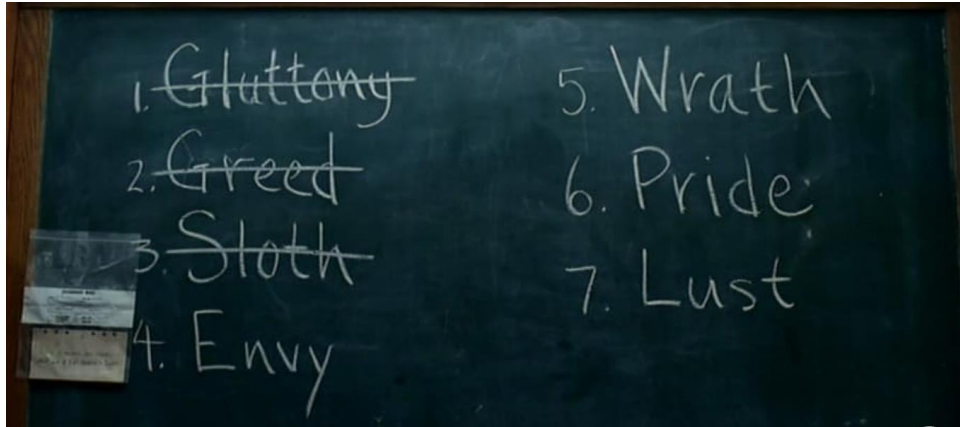 1. Gluttony
2. Greed
3. Sloth
4. Envy
5. Wrath
6. Pride
7. Lust